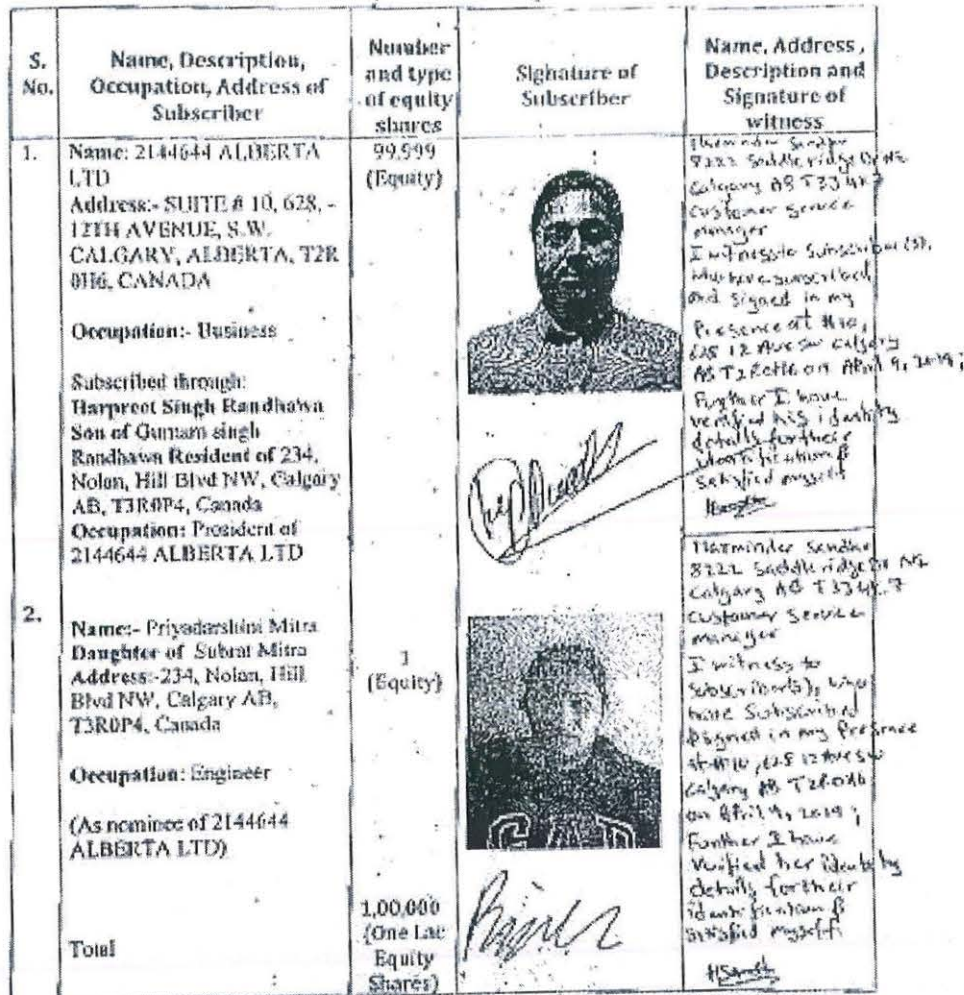 S. No.
Name, Description, Occupation, Address of Subscriber
Number and type of equity shares
Signature of Subscriber
Name, Address, Description and Signature of witness
1.
Name: 2144644 ALBERTA
LTD
Address:- SUITE # 10, 628, -
12TH AVENUE, S.W.
CALGARY, ALBERTA, T2R
0H6, CANADA
Occupation:- Business
Subscribed through:
Harpreet Singh Randhawa
Son of Gurnam singh
Randhawa Resident of 234,
Nolan, Hill Blvd NW, Calgary
AB, T3R0P4, Canada
Occupation: President of
2144644 ALBERTA LTD
99,999
(Equity)
8222 Saddleridge Dr NE
Calgary AB
Customer service
manager
I witness to Subscriber(s),
who have subscribed
and signed in my
Presence at #10,
628 12 Ave SW Calgary
AB on April 9, 2019;
Further I have
verified his identity
details for their
identification &
satisfied myself
2.
Name:- Priyadarshini Mitra
Daughter of Subrat Mitra
Address:-234, Nolan, Hill
Blvd NW, Calgary AB,
T3R0P4, Canada
Occupation: Engineer
(As nominee of 2144644
ALBERTA LTD)
1
(Equity)
GAP
Harminder Sandhu
8222 Saddleridge Dr NE
Calgary AB
Customer Service
manager
I witness to
subscriber(s), who
have Subscribed
& signed in my Presence
at #10, 628 12 Ave SW
Calgary AB
on April 9, 2019;
Further I have
verified her identity
details for their
identification &
satisfied myself
Total
1,00,000
(One Lac
Equity
Shares)